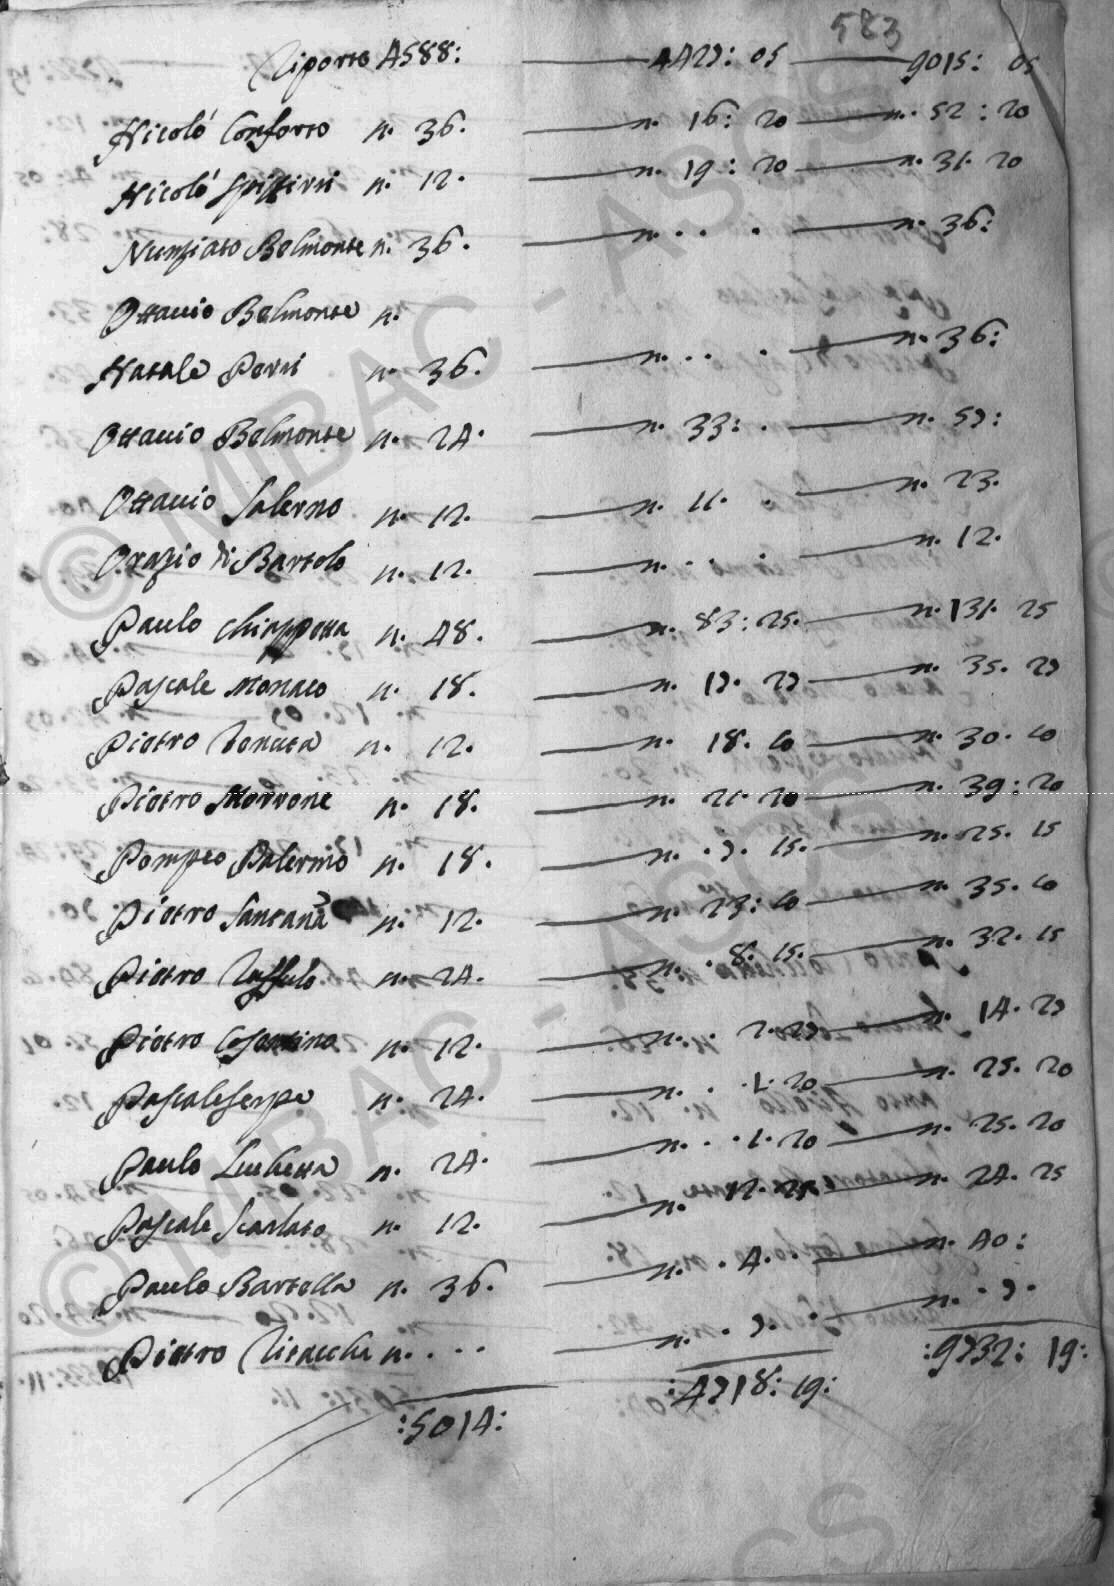 583
Riporto 4588: 4427: 05 9015: 05
Nicolò Conforto n. 36. n. 16: 20 n. 52: 20
Nicolò Spizzirri n. 12. n. 19: 20 n. 31. 20
Nunziato Belmonte n. 36. n. . . . n. 36:
Ottavio Belmonte n.
Natale Perri n. 36. n. . . . n. 36:
Ottavio Belmonte n. 24. n. 33: . n. 57:
Ottavio Salerno n. 12. n. 11. . n. 23.
Orazio di Bartolo n. 12. n. . . . n. 12.
Paulo Chiappetta n. 48. n. 83: 25. n. 131. 25
Pascale Monaco n. 18. n. 17. 27 n. 35. 27
Pietro Tenuta n. 12. n. 18. 10 n. 30. 10
Pietro Morrone n. 18. n. 21. 20 n. 39: 20
Pompeo Palermo n. 18. n. . 7. 15. n. 25. 15
Pietro Santanà n. 12. n. 23: 10 n. 35. 10
Pietro n. 24. n. . 8. 15. n. 32. 15
Pietro Cosentino n. 12. n. . 2. 27 n. 14. 27
Pascale Serpe n. 24. n. . 1. 20 n. 25. 20
Paulo Luchetta n. 24. n. . . 1. 20 n. 25. 20
Pascale Scarlato n. 12. n. 12. 25 n. 24. 25
Paulo Bartella n. 36. n. . 4. . n. 40:
Pietro n. . . . n. . 7. . n. . 7.
:5014: :4718: 19: :9732: 19:
© MIBAC - ASCS
© MIBAC - ASCS
CS